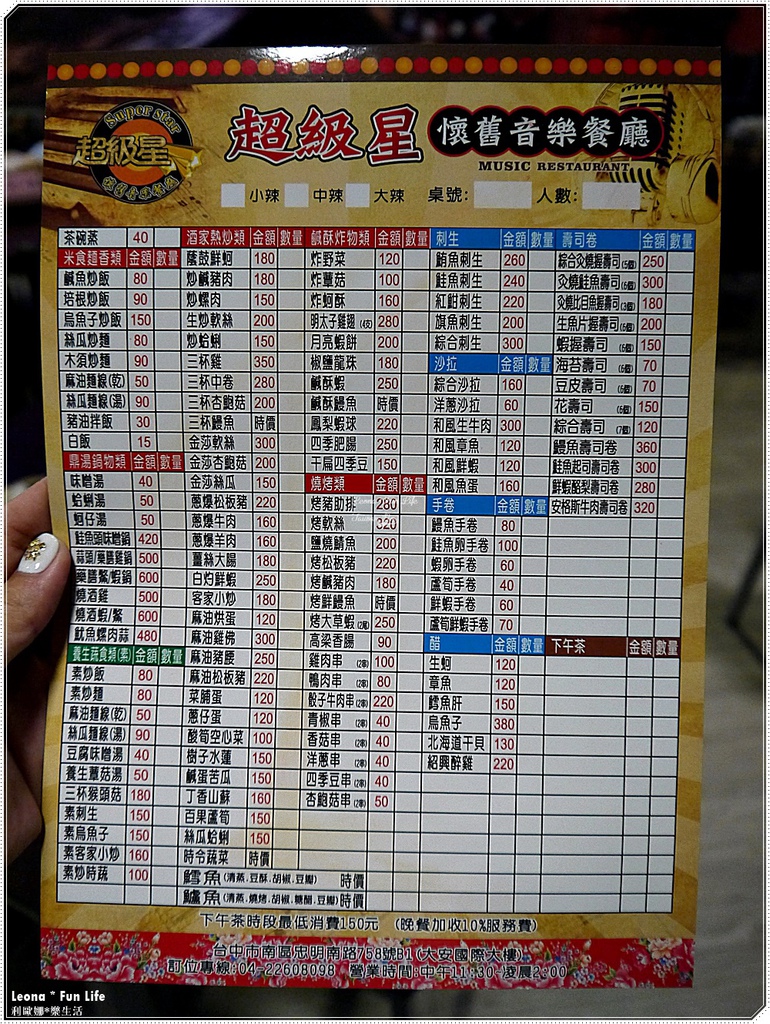 Super star
超級星
懷舊音樂餐廳
超級星 懷舊音樂餐廳
MUSIC RESTAURANT
小辣 中辣 大辣 桌號: 人數:
茶碗蒸 40
米食麵香類 金額 數量
鹹魚炒飯 80
培根炒飯 90
烏魚子炒飯 150
絲瓜炒麵 80
木須炒麵 90
麻油麵線(乾) 50
絲瓜麵線(湯) 90
豬油拌飯 30
白飯 15
鼎湯鍋物類 金額 數量
味噌湯 40
蛤蜊湯 50
蚵仔湯 50
鮭魚頭味噌鍋 420
蒜頭/藥膳雞鍋 500
藥膳鱉/蝦鍋 600
燒酒雞 500
燒酒蝦/鱉 600
魷魚螺肉蒜 480
養生蔬食類(素) 金額 數量
素炒飯 80
素炒麵 80
麻油麵線(乾) 50
絲瓜麵線(湯) 90
豆腐味噌湯 40
養生蕈菇湯 50
三杯猴頭菇 180
素刺生 150
素烏魚子 150
素客家小炒 160
素炒時蔬 100
酒家熱炒類 金額 數量
蔭鼓鮮蚵 180
炒鹹豬肉 180
炒螺肉 150
生炒軟絲 200
炒蛤蜊 150
三杯雞 350
三杯中卷 280
三杯杏鮑菇 200
三杯鰻魚 時價
金莎軟絲 300
金莎杏鮑菇 200
金莎絲瓜 150
蔥爆松板豬 220
蔥爆牛肉 160
蔥爆羊肉 160
薑絲大腸 180
白灼鮮蝦 250
客家小炒 180
麻油烘蛋 120
麻油雞佛 300
麻油豬腰 250
麻油松板豬 220
菜脯蛋 120
蔥仔蛋 120
酸筍空心菜 100
樹子水蓮 150
鹹蛋苦瓜 150
丁香山蘇 160
百果蘆筍 150
絲瓜蛤蜊 150
時令蔬菜 時價
鱈魚(清蒸.豆酥.胡椒.豆瓣) 時價
鱸魚(清蒸.燒烤.胡椒.糖醋.豆瓣) 時價
鹹酥炸物類 金額 數量
炸野菜 120
炸蕈菇 100
炸蚵酥 160
明太子雞翅(4支) 280
月亮蝦餅 200
椒鹽龍珠 180
鹹酥蝦 250
鹹酥鰻魚 時價
鳳梨蝦球 220
四季肥腸 250
干扁四季豆 150
燒烤類 金額 數量
烤豬肋排 280
烤軟絲 320
鹽燒鯖魚 200
烤松板豬 220
烤鹹豬肉 180
烤鮮鰻魚 時價
烤大草蝦(2尾) 250
高梁香腸 90
雞肉串(2串) 100
鴨肉串(2串) 80
骰子牛肉串(2串) 220
青椒串(2串) 40
香菇串(2串) 40
洋蔥串(2串) 40
四季豆串(2串) 40
杏鮑菇串(2串) 50
刺生 金額 數量
鮪魚刺生 260
鮭魚刺生 240
紅魽刺生 220
旗魚刺生 200
綜合刺生 300
沙拉 金額 數量
綜合沙拉 160
洋蔥沙拉 60
和風生牛肉 300
和風章魚 120
和風鮮蝦 120
和風魚蛋 160
手卷 金額 數量
鰻魚手卷 80
鮭魚卵手卷 100
蝦卵手卷 60
蘆筍手卷 40
鮮蝦手卷 60
蘆筍鮮蝦手卷 70
醋 金額 數量
生蚵 120
章魚 120
鱈魚肝 150
烏魚子 380
北海道干貝 130
紹興醉雞 220
壽司卷 金額 數量
綜合炙燒握壽司(5個) 250
炙燒鮭魚壽司(6個) 300
炙燒比目魚握壽司(3個) 180
生魚片握壽司(6個) 200
蝦握壽司(6個) 150
海苔壽司(6個) 70
豆皮壽司(5個) 70
花壽司(6個) 150
綜合壽司(7個) 120
鰻魚壽司卷 360
鮭魚起司壽司卷 300
鮮蝦酪梨壽司卷 280
安格斯牛肉壽司卷 320
下午茶 金額 數量
下午茶時段最低消費150元 (晚餐加收10%服務費)
台中市南區忠明南路758號B1(大安國際大樓)
訂位專線:04-22608098 營業時間:中午11:30-凌晨2:00
Leona * Fun Life
利歐娜*樂生活